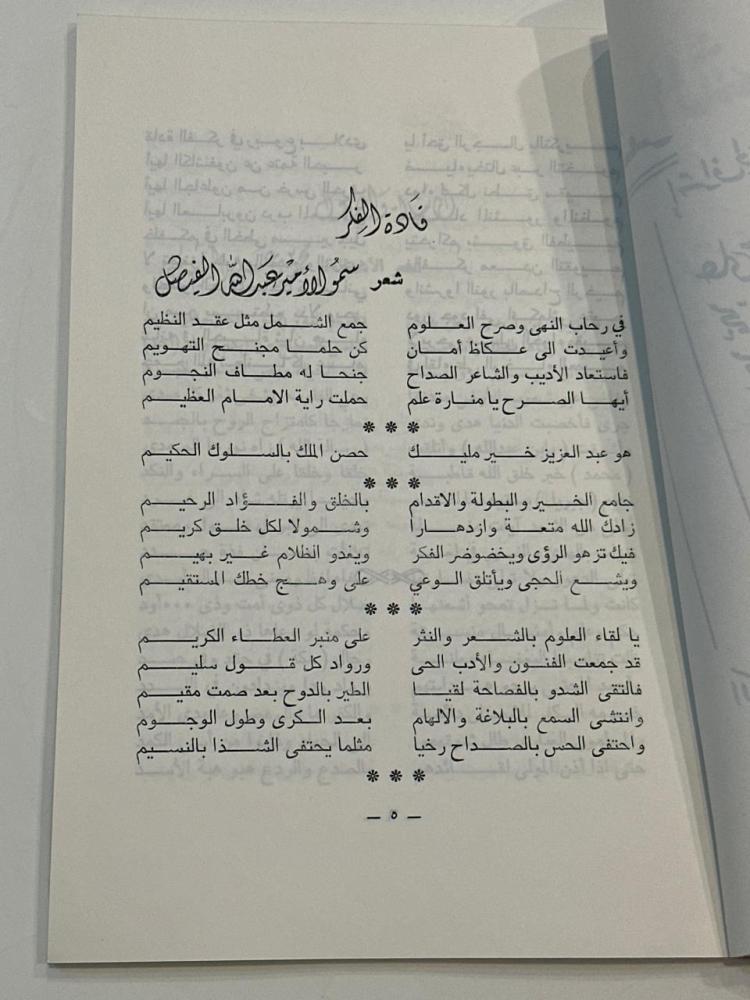 قادة الفكر
شعر سمو الأمير عبد الله الفيصل
في رحاب النهى وصرح العلوم جمع الشمل مثل عقد النظيم
وأعيدت الى عكاظ أمان كن حلما مجنح التهويم
فاستعاد الأديب والشاعر الصداح جنحا له مطاف النجوم
أيها الصرح يا منارة علم حملت راية الامام العظيم
* * *
هو عبد العزيز خير مليك حصن الملك بالسلوك الحكيم
* * *
جامع الخير والبطولة والاقدام بالخلق والفؤاد الرحيم
زادك الله متعة وازدهارا وشمولا لكل خلق كريم
فيك تزهو الرؤى ويخضوضر الفكر ويغدو الظلام غير بهيم
ويشع الحجى ويأتلق الوعي على وهج خطك المستقيم
* * *
يا لقاء العلوم بالشعر والنثر على منبر العطاء الكريم
قد جمعت الفنون والأدب الحى ورواد كل قول سليم
فالتقى الشدو بالفصاحة لقيا الطير بالدوح بعد صمت مقيم
وانتشى السمع بالبلاغة والالهام بعد الكرى وطول الوجوم
واحتفى الحس بالصداح رخيا مثلما يحتفى الشذا بالنسيم
* * *
— ٥ —